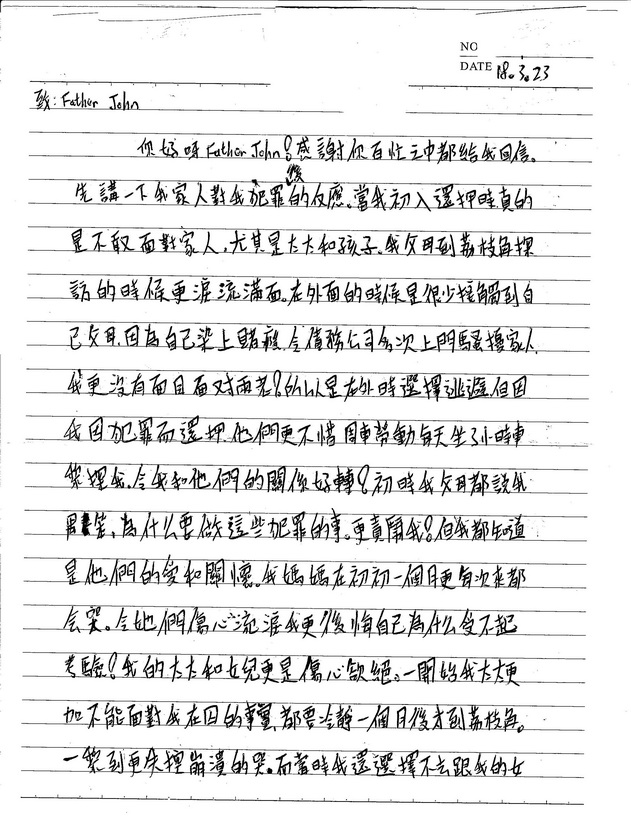 NO
DATE 18.3.23
致: Father John
你好呀Father John!感謝你百忙之中都給我回信。
先講一下我家人對我犯罪後的反應。當我初入還押時真的
是不敢面對家人,尤其是太太和孩子。我父母到荔枝角探
訪的時候更淚流滿面。在外面的時候是很少接觸到自
己父母,因為自己染上賭癮,令債務公司多次上門騷擾家人,
我更沒有面目面对兩老!所以是在外時選擇逃避。但因
我因犯罪而還押,他們更不惜車勞動每天坐了小時車
黎探我,令我和他們的關係好轉!初時我父母都說我
笨,為什么要做這些犯罪的事,更責鬧我!但我都知道
是他們的愛和關懷。我媽媽在初初一個月更每次來都
會哭。令她們傷心流淚我更後悔自己為什么受不起
考驗!我的太太和女兒更是傷心欲絕。一開始我太太更
加不能面對我在囚的事實,都要冷靜一個月後才到荔枝角。
一黎到更失控崩潰的哭。而當時我還選擇不去跟我的女